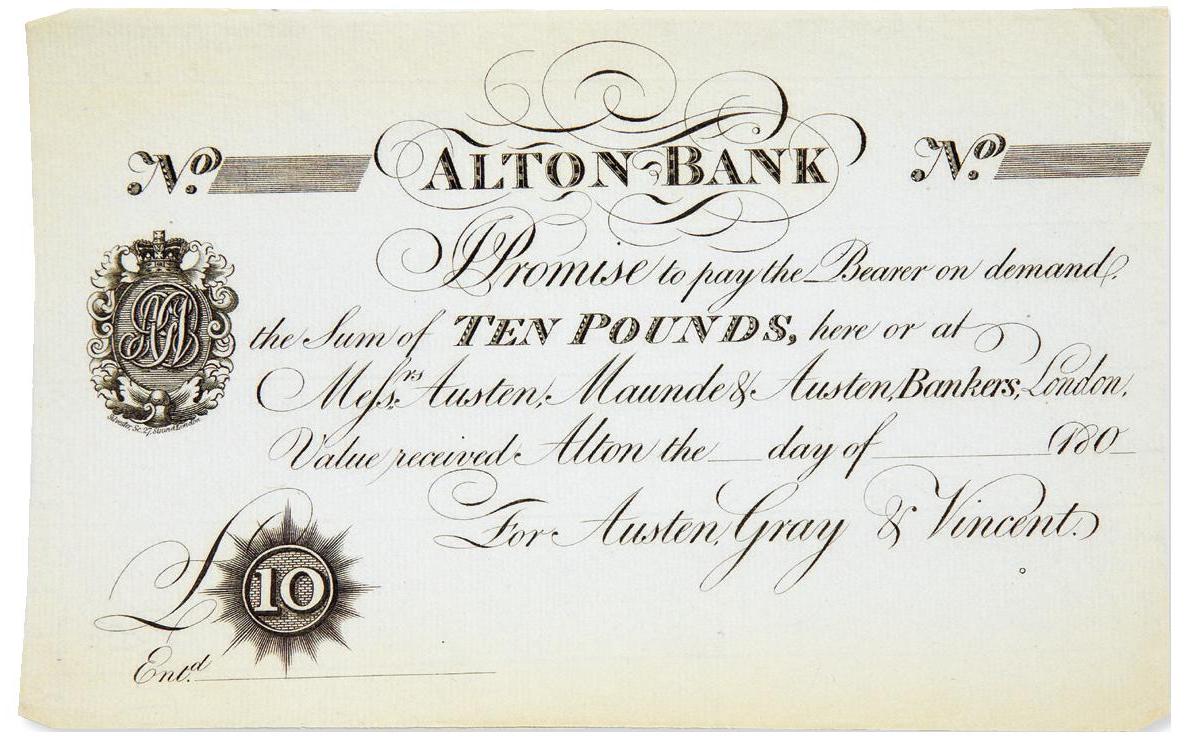 No. ALTON BANK No.
I Promise to pay the Bearer on demand
the Sum of TEN POUNDS, here or at
Messrs. Austen, Maunde & Austen, Bankers, London,
Value received Alton the __ day of ________ 180_
For Austen, Gray & Vincent.
Sc. 27, Strand London
£ 10
Entd.